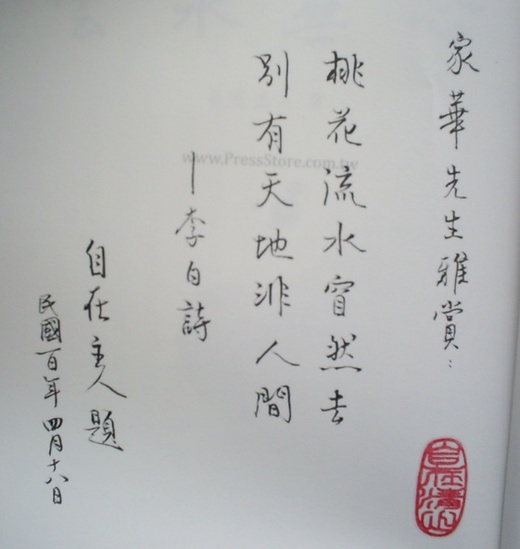 家華先生雅賞：
桃花流水窅然去
別有天地非人間
—李白詩
自在主人題
民國百年四月十八日
www.PressStore.com.tw
自在